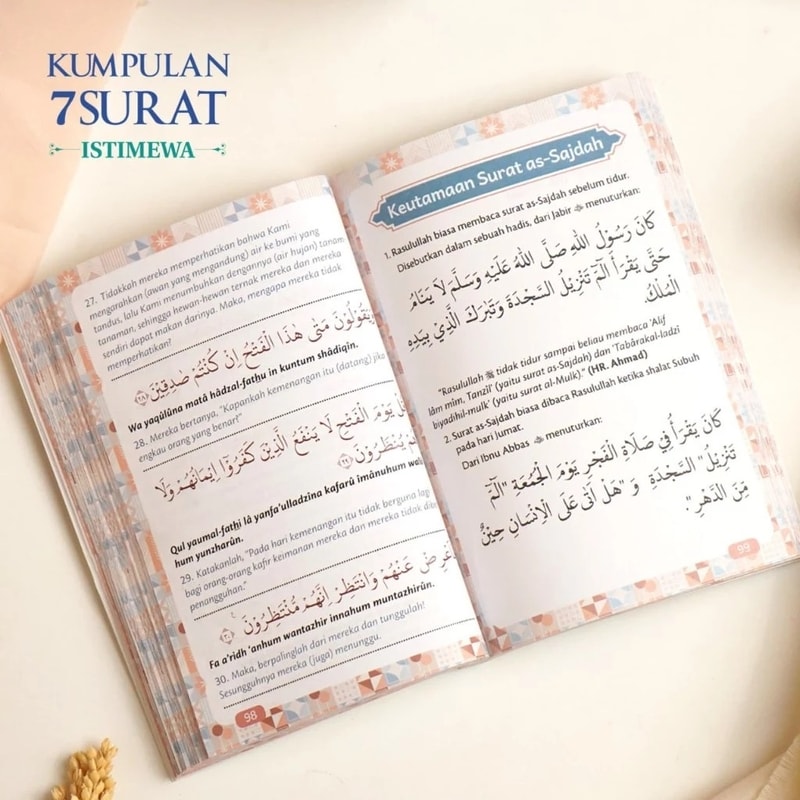 KUMPULAN
7SURAT
ISTIMEWA
27. Tidakkah mereka memperhatikan bahwa Kami
mengarahkan (awan yang mengandung) air ke bumi yang
tandus, lalu Kami menumbuhkan dengannya (air hujan) tanam
tanaman, sehingga hewan-hewan ternak mereka dan mereka
sendiri dapat makan darinya. Maka, mengapa mereka tidak
memperhatikan?
وَيَقُوْلُوْنَ مَتٰى هٰذَا الْفَتْحُ اِنْ كُنْتُمْ صٰدِقِيْنَ ٢٨
Wa yaqûlûna matâ hâdzal-fatḫu in kuntum shâdiqîn.
28. Mereka bertanya, "Kapankah kemenangan itu (datang) jika
engkau orang yang benar?"
يَوْمَ الْفَتْحِ لَا يَنْفَعُ الَّذِيْنَ كَفَرُوْٓا اِيْمَانُهُمْ وَلَا
يُنْظَرُوْنَ ٢٩
Qul yaumal-fatḫi lâ yanfa'ulladzîna kafarû îmânuhum wa
hum yunzharûn.
29. Katakanlah, "Pada hari kemenangan itu tidak berguna lag
bagi orang-orang kafir keimanan mereka dan mereka tidak dib
penangguhan."
عَنْهُمْ وَانْتَظِرْ اِنَّهُمْ مُّنْتَظِرُوْنَ ٣٠
Fa a'ridh 'anhum wantazhir innahum muntazhirûn.
30. Maka, berpalinglah dari mereka dan tunggulah!
Sesungguhnya mereka (juga) menunggu.
98
Keutamaan Surat as-Sajdah
1. Rasulullah biasa membaca surat as-Sajdah sebelum tidur.
Disebutkan dalam sebuah hadis, dari Jabir menuturkan:
كَانَ رَسُوْلُ اللهِ صَلَّى اللهُ عَلَيْهِ وَسَلَّمَ لَا يَنَامُ
حَتَّى يَقْرَأَ الٓمّٓ تَنْزِيْلُ السَّجْدَةَ وَتَبْرَكَ الَّذِيْ بِيَدِهِ
الْمُلْكُ.
"Rasulullah ﷺ tidak tidur sampai beliau membaca 'Alif
lâm mîm. Tanzîl' (yaitu surat as-Sajdah) dan 'Tabârakal-ladzî
biyadihil-mulk' (yaitu surat al-Mulk)." (HR. Ahmad)
2. Surat as-Sajdah biasa dibaca Rasulullah ketika shalat Subuh
pada hari jumat.
Dari Ibnu Abbas menuturkan:
كَانَ يَقْرَأُ فِي صَلَاةِ الْفَجْرِ يَوْمَ الْجُمُعَةِ "الٓمّٓ
تَنْزِيْلُ" السَّجْدَةَ وَ"هَلْ اَتٰى عَلَى الْاِنْسَانِ حِيْنٌ
مِنَ الدَّهْرِ".
99